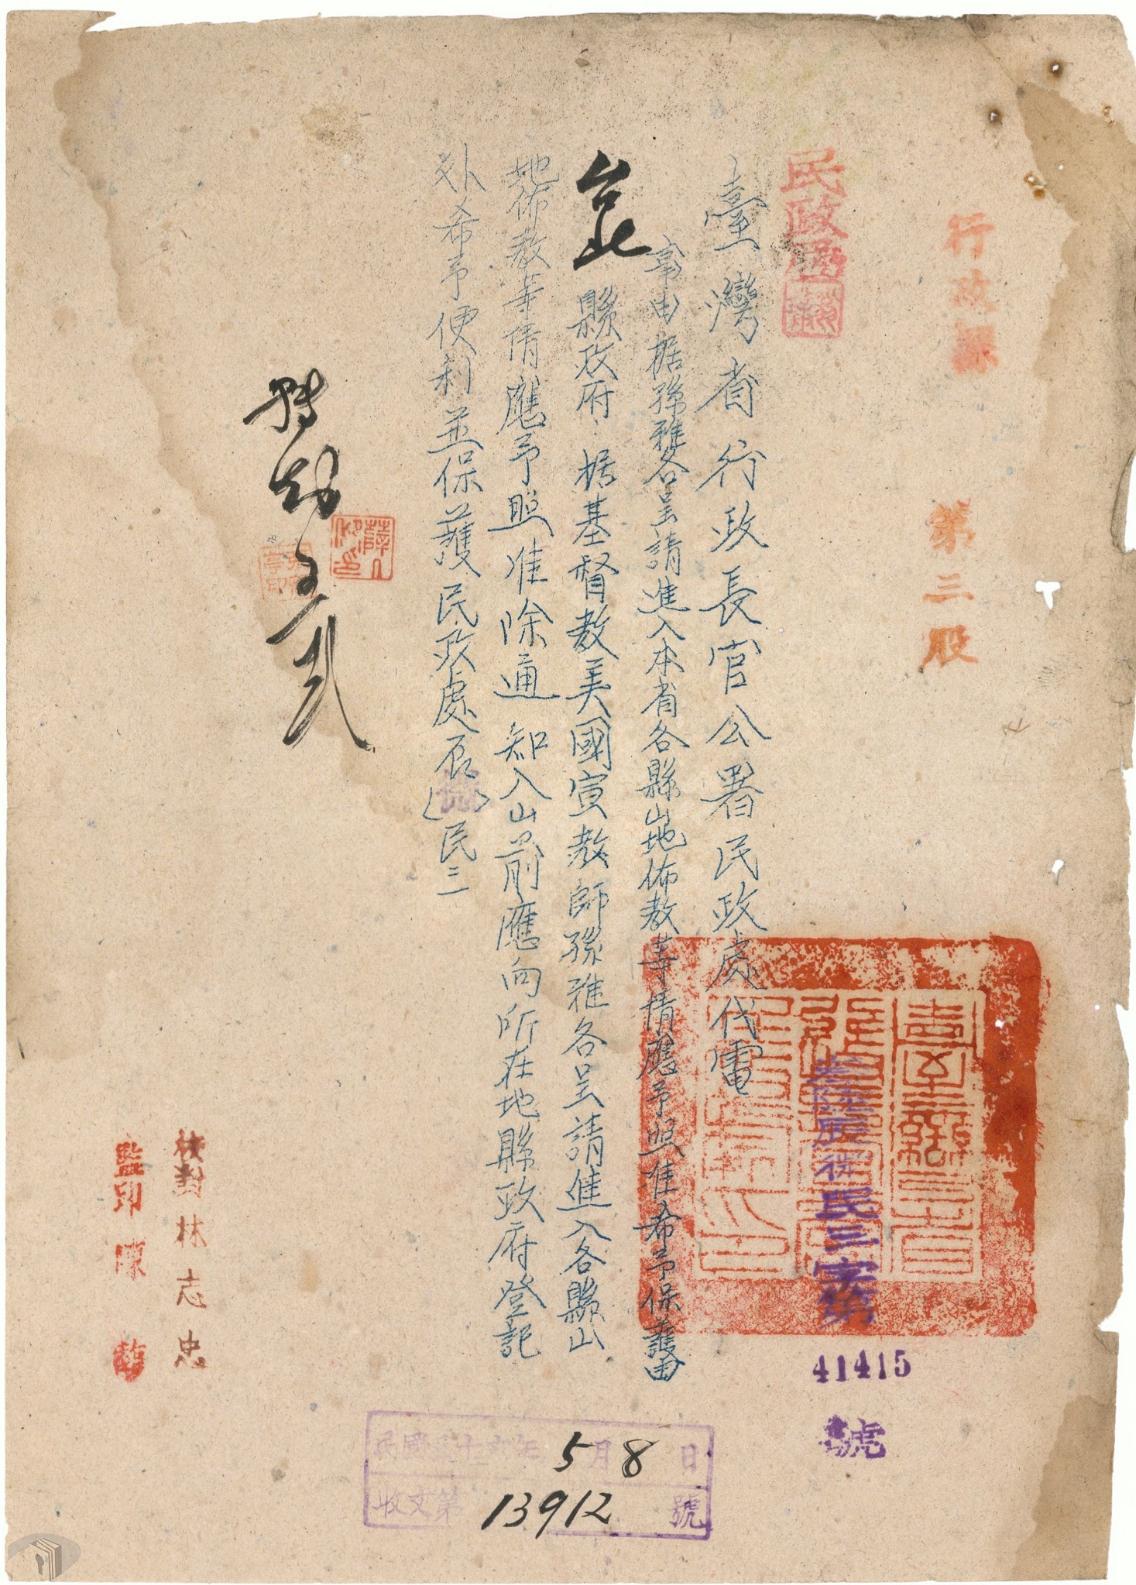 行政課 第三股
民政處
臺灣省行政長官公署民政處代電
叁陸辰 民三字第41415號
事由 据孫雅各呈請進入本省各縣山地佈教等情應予照准希予保護由
台北縣政府 据基督教美國宣教師孫雅各呈請進入各縣山
地佈教等情應予照准除通知入山前應向所在地縣政府登記
外希予便利並保護民政處辰( )民三
校對 林志忠
監印 陳
民國三十六年5月8日
收文第13912號